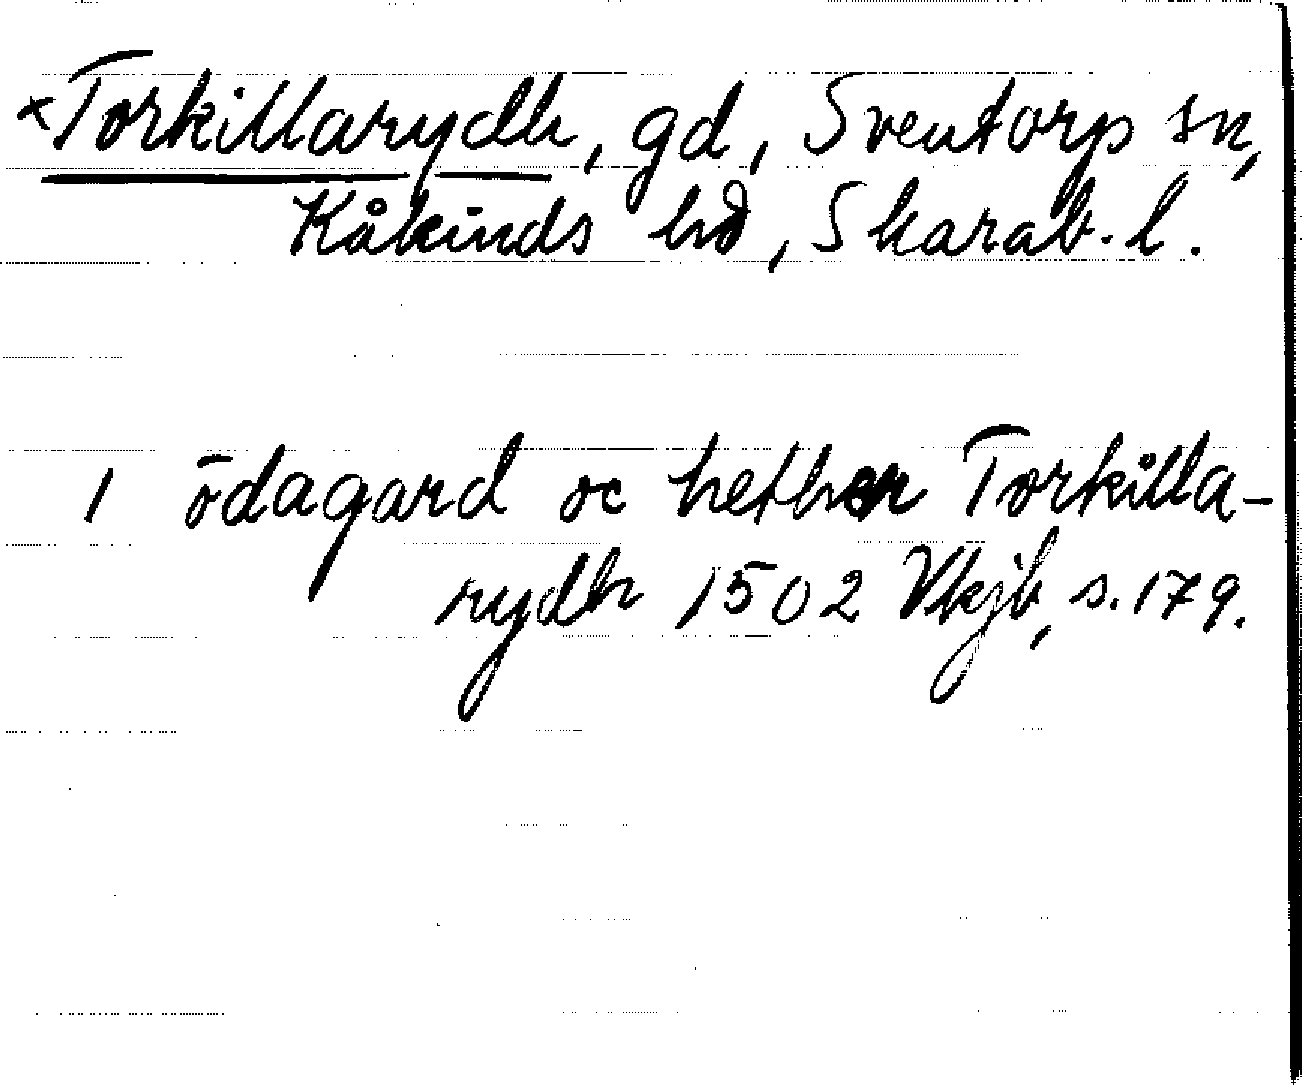 ×Torkillarydh, gd, Sventorp sn,
Kåkinds hd, Skarab. l.
1 ödagard oc hether Torkilla-
rydh 1502 Vkjb, s. 179.